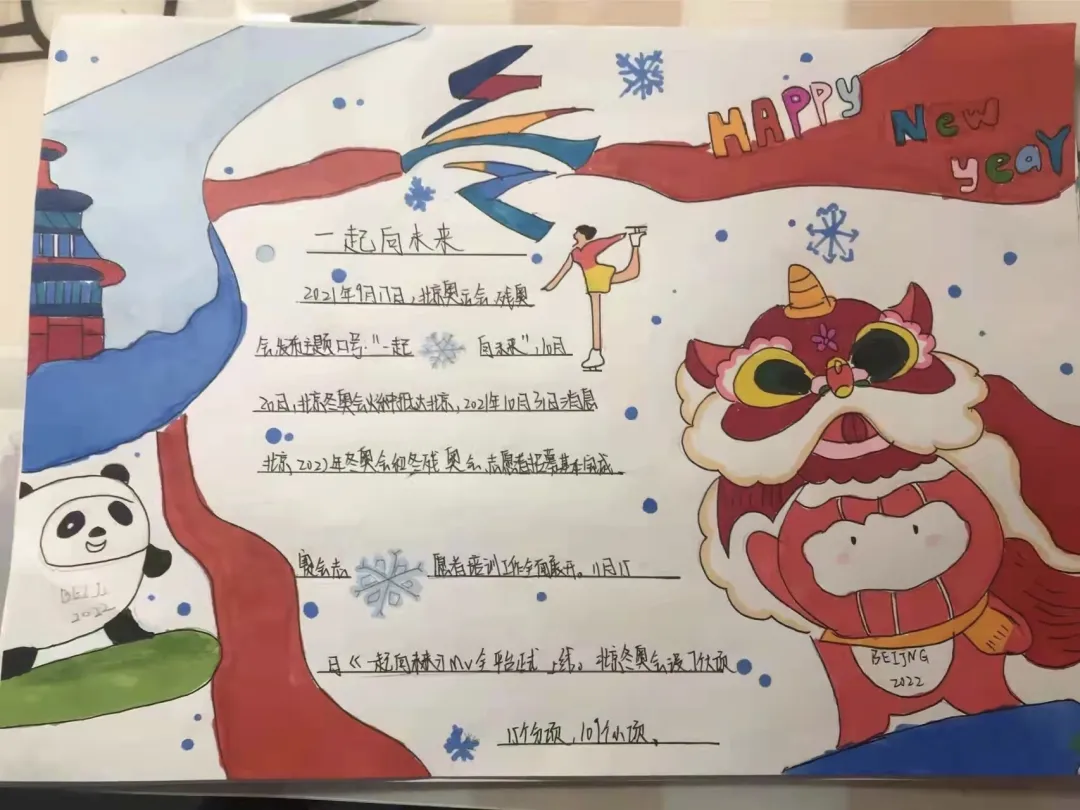 HAPPY
New
yeaY
一起向未来
2021年9月17日,北京奥运会、残奥
会发布主题口号:"一起 向未来",10月
20日,北京冬奥会火种抵达北京,2021年10月31日消息
北京2022年冬奥会和冬残奥会,志愿者招募基本完成
赛会志 愿者培训工作全面展开。11月15
日《一起向未来》MV全平台正式上线。北京冬奥会设7个大项
15个分项,109个小项、
BEIJI
2022
BEIJNG
2022